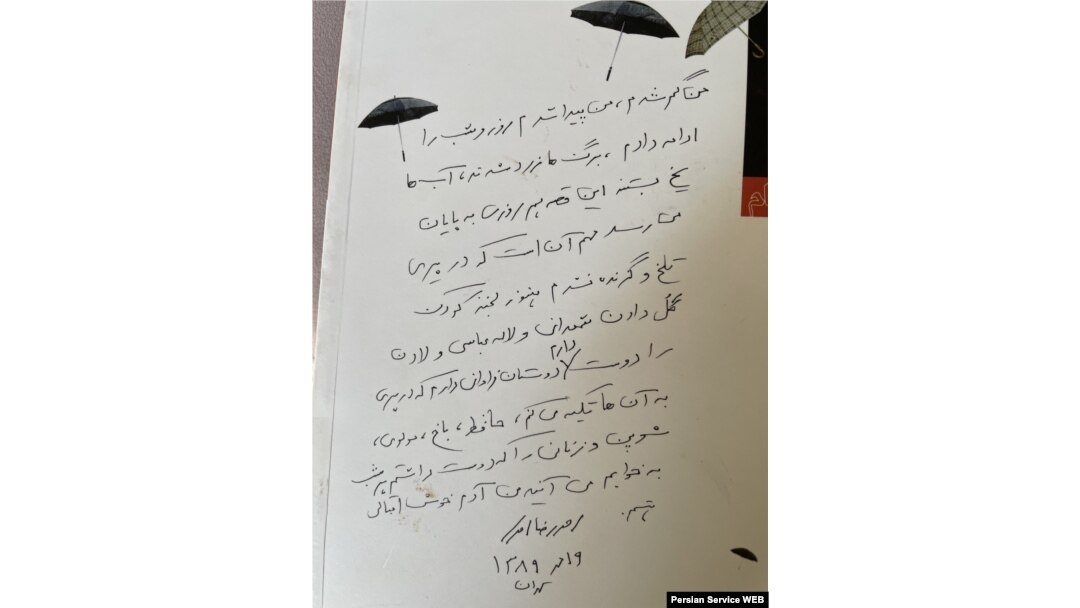 من گم شدم، من پیدا شدم روز و شب را
ادامه دادم، برگ ها زرد شدند، آب ها
یخ بستند این قصه هم روزی به پایان
می رسد مهم آن است که در پیری
تلخ و گزنده نشدم هنوز لبخند کودک
گُل دادن شمعدانی و لاله عباسی و لادن
را دوست دارم دوستان فراوانی دارم که در پیری
به آن ها تکیه می کنم، حافظ، باخ، مولوی،
شوپن و زنانی را که دوست داشتم هر شب
به خوابم می آیند من آدم خوش اقبالی
هستم.
احمدرضا احمدی
۱۹ مهر ۱۳۸۹
تهران
Persian Service WEB